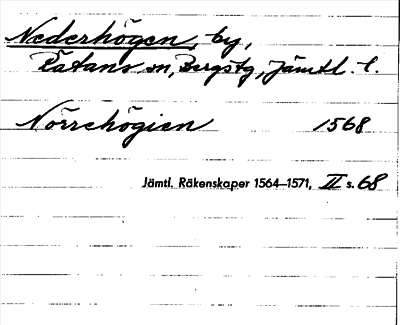 Nederhögen, by,
Rätans sn, Bergstg, Jämtl. l.
Nörrehögien 1568
Jämtl. Räkenskaper 1564–1571, II s. 68